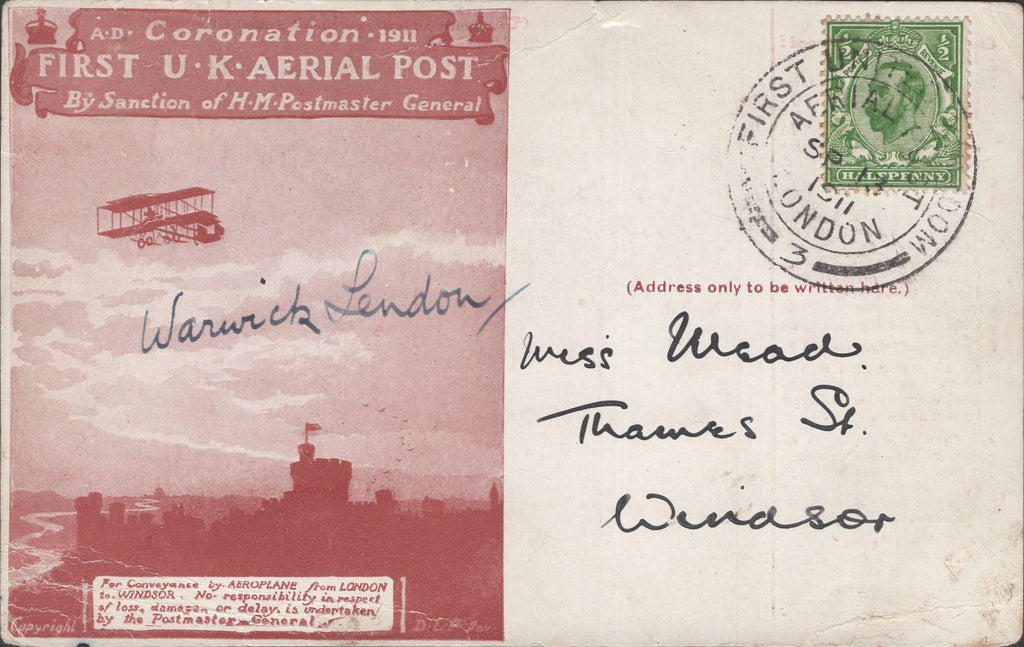 A·D· Coronation ·1911
FIRST U·K·AERIAL POST
By Sanction of H·M·Postmaster General
Warwick Lendon
For Conveyance by AEROPLANE from LONDON
to WINDSOR. No responsibility in respect
of loss, damage, or delay, is undertaken
by the Postmaster-General
Copyright
½ POSTAGE REVENUE ½
HALFPENNY
FIRST UNITED KINGDOM
AERIAL POST
SP 13
1911
LONDON
3
(Address only to be written here.)
Miss Mead.
Thames St.
Windsor